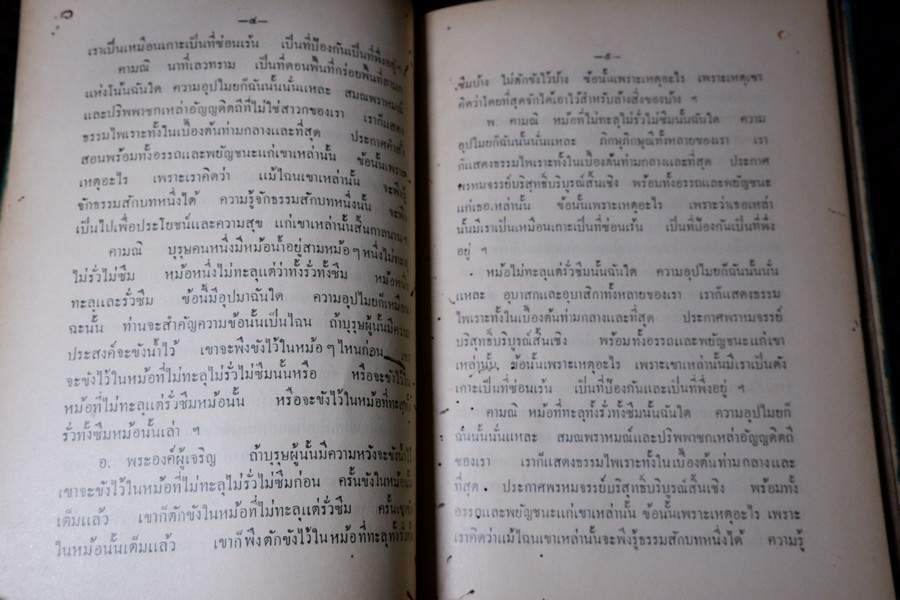 —๔—
เราเป็นเหมือนเกาะเป็นที่ซ่อนเร้น เป็นที่ป้องกันเป็นที่พึ่งอยู่ ฯ
คามณิ นาที่เลวทราม เป็นที่ดอนพื้นที่กร่อยพื้นที่
แห่งโน่นฉันใด ความอุปไมยก็ฉันนั้นนั่นแหละ สมณพราหมณ์
และปริพพาชกเหล่าอัญญดิตถีที่ไม่ใช่สาวกของเรา เราก็แสดง
ธรรมไพเราะทั้งในเบื้องต้นท่ามกลางและที่สุด ประกาศคำสั่ง
สอนพร้อมทั้งอรรถและพยัญชนะแก่เขาเหล่านั้น ข้อนั้นเพราะ
เหตุอะไร เพราะเราคิดว่า แม้ไฉนเขาเหล่านั้น จะพึงรู้
จักธรรมสักบทหนึ่งได้ ความรู้จักธรรมสักบทหนึ่งนั้น จะพึง
เป็นไปเพื่อประโยชน์และความสุข แก่เขาเหล่านั้นสิ้นกาลนาน ฯ
คามณิ บุรุษคนหนึ่งมีหม้อน้ำอยู่สามหม้อ ๆ หนึ่งไม่ทะลุ
ไม่รั่วไม่ซึม หม้อหนึ่งไม่ทะลุแต่ว่าทั้งรั่วทั้งซึม หม้อหนึ่ง
ทะลุและรั่วซึม ข้อนี้มีอุปมาฉันใด ความอุปไมยก็เหมือน
ฉะนั้น ท่านจะสำคัญความข้อนั้นเป็นไฉน ถ้าบุรุษผู้นั้นมีความ
ประสงค์จะขังน้ำไว้ เขาจะพึงขังไว้ในหม้อ ๆ ไหนก่อน
จะขังไว้ในหม้อที่ไม่ทะลุไม่รั่วไม่ซึมนั้นหรือ หรือจะขังไว้ใน
หม้อที่ไม่ทะลุแต่รั่วซึมหม้อนั้น หรือจะขังไว้ในหม้อที่ทะลุทั้ง
รั่วทั้งซึมหม้อนั้นเล่า ฯ
อ. พระองค์ผู้เจริญ ถ้าบุรุษผู้นั้นมีความหวังจะขังน้ำไว้
เขาจะขังไว้ในหม้อที่ไม่ทะลุไม่รั่วไม่ซึมก่อน ครั้นขังในหม้อนั้น
เต็มแล้ว เขาก็ตักขังในหม้อที่ไม่ทะลุแต่รั่วซึม ครั้นเขาขัง
ในหม้อนั้นเต็มแล้ว เขาก็พึงตักขังไว้ในหม้อที่ทะลุทั้งรั่วทั้ง
—๕—
ซึมบ้าง ไม่ตักขังไว้บ้าง ข้อนั้นเพราะเหตุอะไร เพราะเหตุเขา
คิดว่าโดยที่สุดจักได้เอาไว้สำหรับล้างสิ่งของบ้าง ฯ
พ. คามณิ หม้อที่ไม่ทะลุไม่รั่วไม่ซึมนั้นฉันใด ความ
อุปไมยก็ฉันนั้นนั่นแหละ ภิกษุภิกษุณีทั้งหลายของเรา เรา
ก็แสดงธรรมไพเราะทั้งในเบื้องต้นท่ามกลางและที่สุด ประกาศ
พรหมจรรย์บริสุทธิ์บริบูรณ์สิ้นเชิง พร้อมทั้งอรรถและพยัญชนะ
แก่เธอเหล่านั้น ข้อนั้นเพราะเหตุอะไร เพราะว่าเธอเหล่า
นั้นมีเราเป็นเหมือนเกาะเป็นที่ซ่อนเร้น เป็นที่ป้องกันเป็นที่พึ่ง
อยู่ ฯ
หม้อไม่ทะลุแต่รั่วซึมนั้นฉันใด ความอุปไมยก็ฉันนั้นนั่น
แหละ อุบาสกและอุบาสิกาทั้งหลายของเรา เราก็แสดงธรรม
ไพเราะทั้งในเบื้องต้นท่ามกลางและที่สุด ประกาศพรหมจรรย์
บริสุทธิ์บริบูรณ์สิ้นเชิง พร้อมทั้งอรรถและพยัญชนะแก่เขา
เหล่านั้น ข้อนั้นเพราะเหตุอะไร เพราะเขาเหล่านั้นมีเราเป็นดัง
เกาะเป็นที่ซ่อนเร้น เป็นที่ป้องกันและเป็นที่พึ่งอยู่ ฯ
คามณิ หม้อที่ทะลุทั้งรั่วทั้งซึมนั้นฉันใด ความอุปไมยก็
ฉันนั้นนั่นแหละ สมณพราหมณ์และปริพพาชกเหล่าอัญญดิตถี
ของเรา เราก็แสดงธรรมไพเราะทั้งในเบื้องต้นท่ามกลางและ
ที่สุด ประกาศพรหมจรรย์บริสุทธิ์บริบูรณ์สิ้นเชิง พร้อมทั้ง
อรรถและพยัญชนะแก่เขาเหล่านั้น ข้อนั้นเพราะเหตุอะไร เพราะ
เราคิดว่าแม้ไฉนเขาเหล่านั้นจะพึงรู้ธรรมสักบทหนึ่งได้ ความรู้